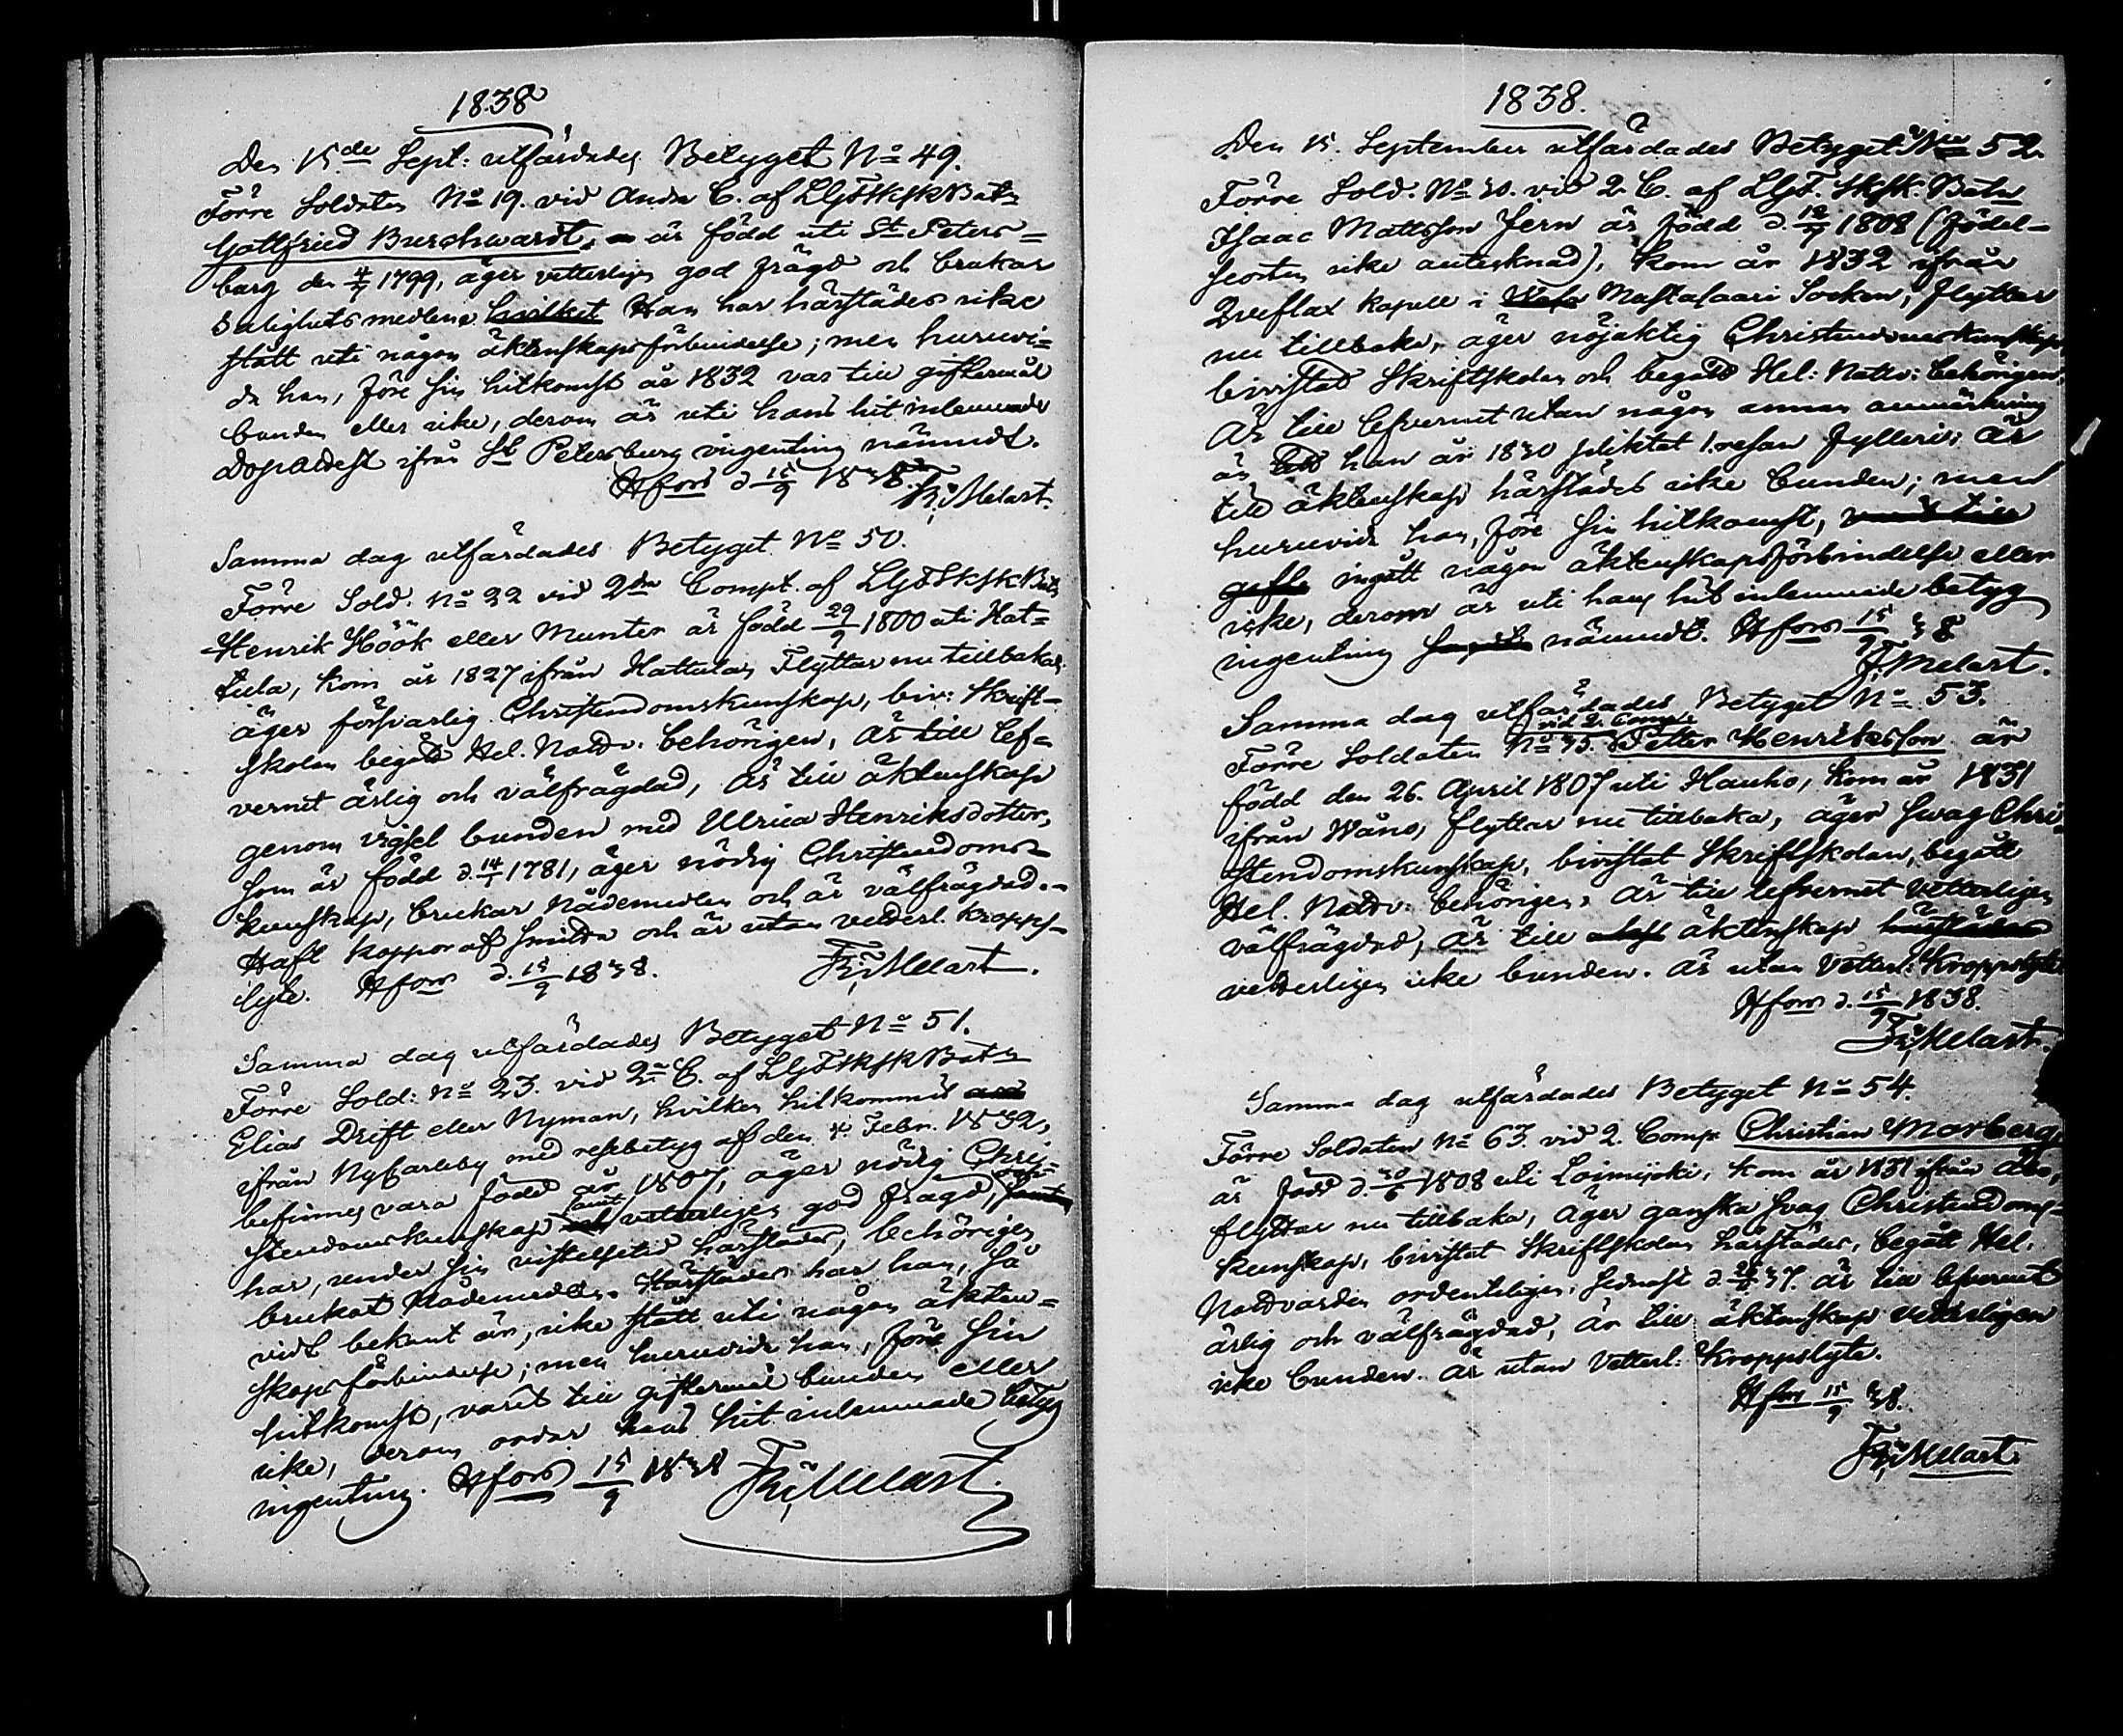 1838
Den 15de Sept: utfärdades Betyget No 49.
Förre Soldaten No 19. vid Andra C. af LGFSkSkBatn
Gottfried Burchwardt, är född uti St Peters=
burg den 4/7 1799, äger vetterligen god frägd och brukar
Salighetsmedlen, hvilket Han har härstädes icke
stått uti någon äktenskapsförbindelse; men huruvi=
da han, före sin hitkomst år 1832 var till giftermål
bunden eller icke, derom är uti hans hit inlemnade
Dopattest ifrån St Petersburg ingenting nämndt.
Hfors d. 15/9 1838. Fr: Melart.
Samma dag utfärdades Betyget No 50.
Förre Sold: No 22 vid 2dra Compt. af LGFSkSkBatn
Henrik Höök eller Munter är född 29/9 1800 uti Hat=
tula, kom år 1827 ifrån Hattula, Flyttar nu tillbaka,
äger försvarlig Christendomskunskap, biv: Skrift=
skolan begått Hel. Nattv: behörigen, är till lef=
vernet ärlig och välfrägdad, är till äktenskap
genom vigsel bunden med Ulrica Henriksdotter,
som är född d. 14/1 1781, äger nödig Christendoms=
kunskap, brukar Nådemedlen och är välfrägdad.
Haft koppor af smitta och är utan vetterl. kropps=
lyte. Hfors d. 15/9 1838. Fr: Melart.
Samma dag utfärdades Betyget No 51.
Förre Sold: No 23. vid 2a C. af LGFSkSkBatn
Elias Drift eller Nyman, hvilken hitkommit
ifrån NyCarleby med resebetyg af den 4. Febr. 1832,
befinnes vara född år 1807, äger nödig Chri=
stendomskunskap samt vetterligen god frägd, och
har, under sin vistelsetid härstädes, behörigen
brukat Nådemedlen. Härstädes har han, så
vidt bekant är, icke stått uti någon äkten=
skapsförbindelse; men huruvida han, före sin
hitkomst, varit till giftermål bunden eller
icke, derom ordar hans hit inlemnade betyg
ingenting. Hfors 15/9 1838 Fr: Melart.
1838.
Den 15. September utfärdades Betyget No 52.
Förre Sold. No 30. vid 2. C. af LGF. SkSk. Batn
Isaac Mattsson Jern är född d. 12/7 1808 (födel=
seorten icke antecknad), kom år 1832 ifrån
Qveflax kapell i Wasa Mustasaari Socken, flyttar
nu tillbaka, äger nöjaktig Christendomskunskap,
bivistat Skriftskolan och begått Hel: Nattv: behörigen.
Är till lefvernet utan någon annan anmärkning
än att han år 1830 pliktat 1. resan fylleri; är
till äktenskap härstädes icke bunden; men
huruvida han, före sin hitkomst, varit till
gifte ingått någon äktenskapsförbindelse eller
icke, derom är uti hans hit inlemnade betyg
ingenting nämndt. Hfors 15/9 38
F. Melart.
Samma dag utfärdades Betyget No 53.
vid 2. Comp:
Förre Soldaten No 35. Petter Henriksson är
född den 26. April 1807 uti Hauho, kom år 1831
ifrån Wåno, flyttar nu tillbaka, äger svag Chri=
stendomskunskap, bivistat Skriftskolan, begått
Hel. Nattv: behörigen, är till lefvernet vetterligen
välfrägdad, är till äktenskap härstädes
vetterligen icke bunden. är utan Vetterl: Kroppslyte
Hfors d. 15/9 1838.
Fr: Melart.
Samma dag utfärdades Betyget No 54.
Förre Soldaten No 63. vid 2. Comp. Christian Marberg
är född d. 30/6 1808 uti Loimijoki, kom år 1831 ifrån Åbo,
flyttar nu tillbaka, äger ganska svag Christendoms=
kunskap, bivistat Skriftskolan härstädes, begått Hel.
Nattvarden ordentligen, sednast d. 37. är till lefvernet
ärlig och välfrägdad, är till äktenskap vetterligen
icke bunden. är utan Vetterl: Kroppslyte.
Hfors 15/9 38.
Fr: Melart.